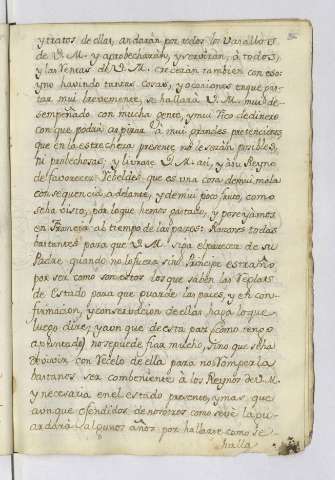 y tratos de ellas, andarán por todos los Vasallos
de V. M. y aprobecharán, y servirán, á todos,
y las Rentas de V. M. crecerán tambien con eso:
y no haviendo tantas cosas, y ocasiones en que gas-
tar mui brevemente, se hallará V. M. mui de-
sempeñado con mucha gente, y mui rico de dinero
con que podrá aspirar á mui grandes pretenciones
que en la estrechera presente no le serán posibles,
ni probechosas; y librase V. M. asi, y á su Reyno
de favorecer Rebeldes que es una cosa de mui mala
consequencia adelante, y de mui poco fruto, como
se ha visto, por lo que hemos gastado, y
en Francia al tiempo de las pazes: Razones todas
bastantes para que V. M. siga el parecer de su
Padre quando no lo fuera sino Principe estraño
por ser como son estos los que saben las Reglas
de Estado para que guarde las pazes, y en con-
firmacion, y conservacion de ellas haga lo que
luego dire; y aun que de esta paz (como tengo
apuntado) no se puede fiar mucho, sino que se ha
de vivir con recelo de ella para no romperla
bastanos ser combeniente á los Reynos de V. M.
y necesaria en el estado presente, y mas que
aunque ofendidos de nosotros como se ve la gu-
ardará algunos años por hallarse como se
halla